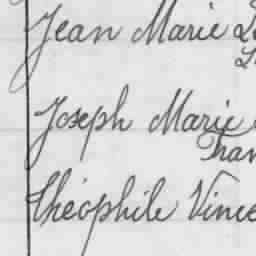 Jean Marie
Joseph Marie
Fran
Théophile Vince